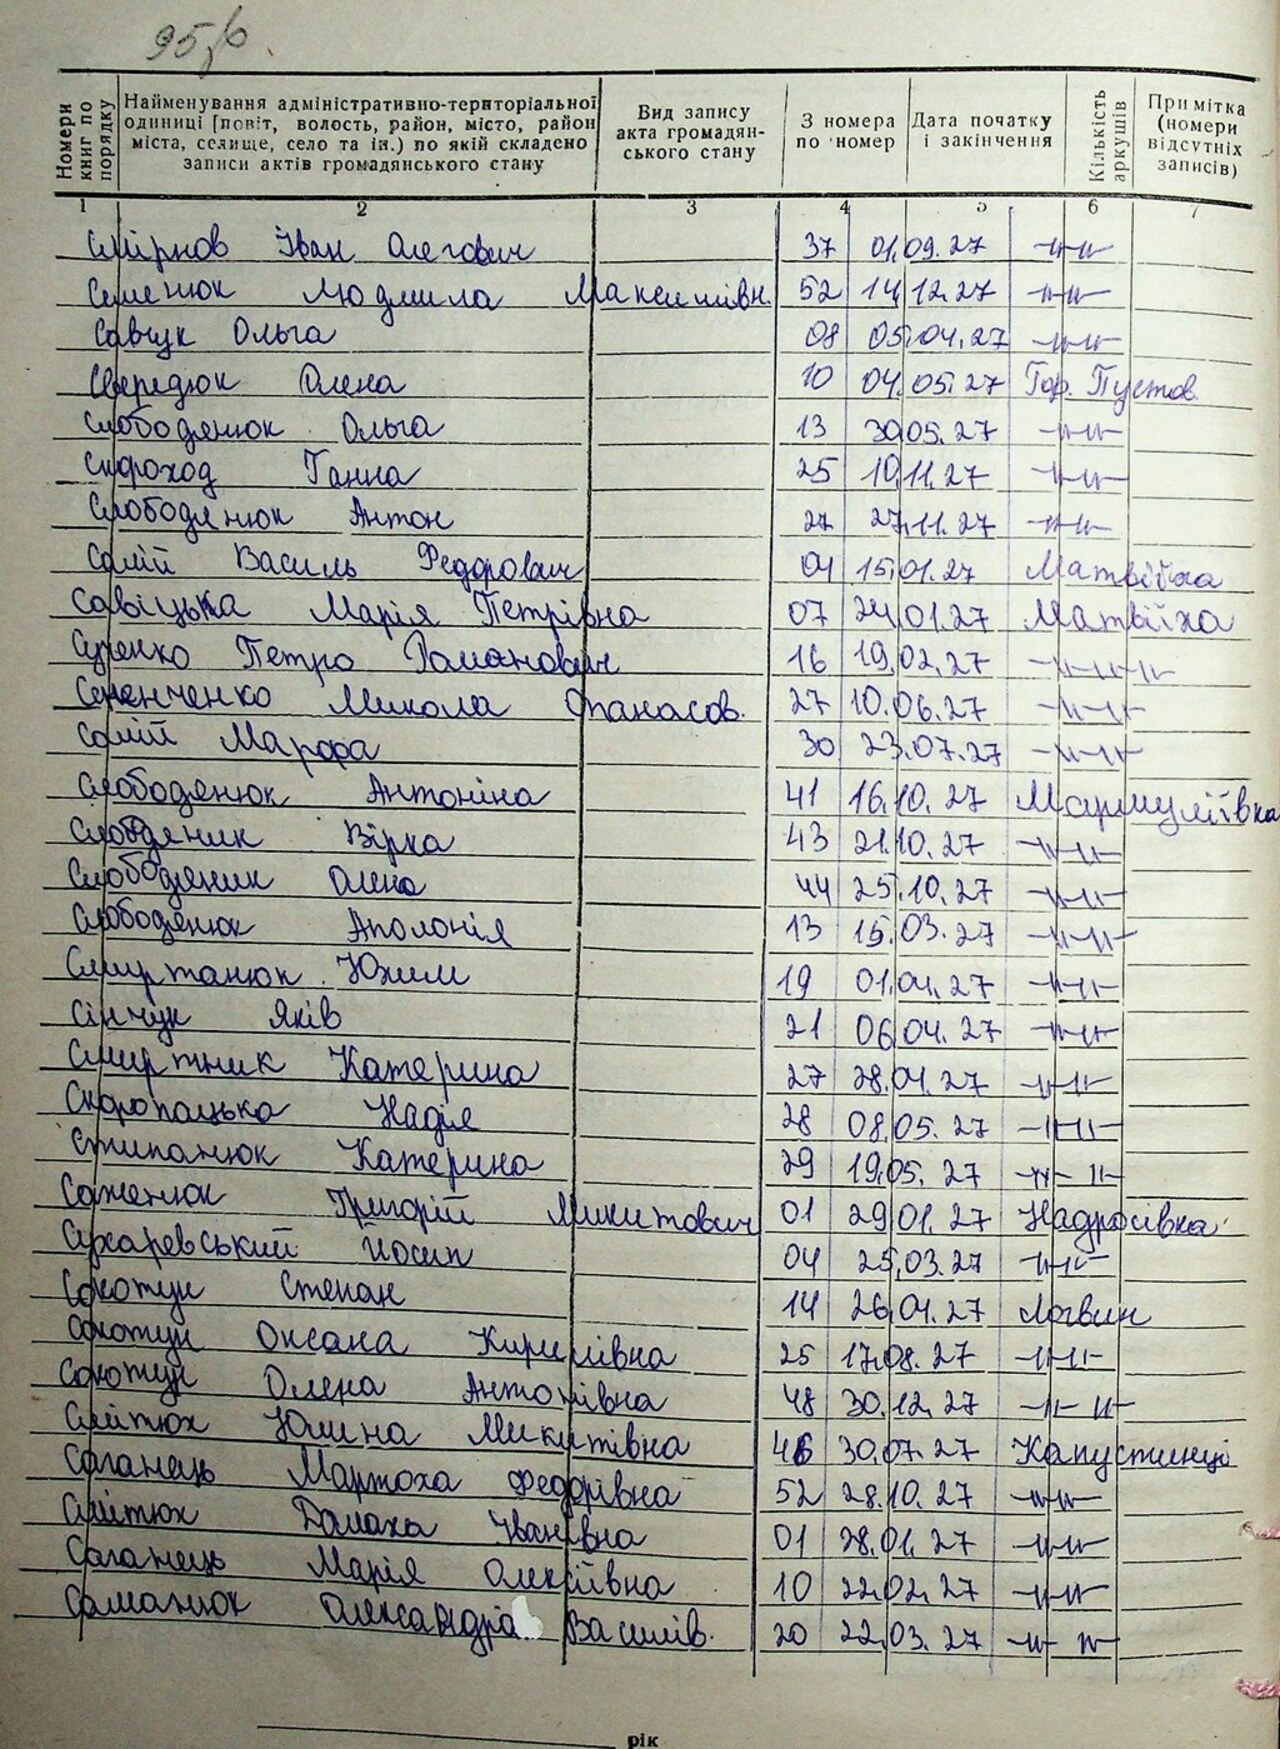 95зв.
Номери книг по порядку
Найменування адміністративно-територіальної одиниці [повіт, волость, район, місто, район міста, селище, село та ін.) по якій складено записи актів громадянського стану
Вид запису акта громадян-ського стану
З номера по номер
Дата початку і закінчення
Кількість аркушів
Примітка (номери відсутніх записів)
1 2 3 4 5 6 7
Смірнов Іван Олегович 37 01.09.27 -//-//-
Семенюк Людмила Максимівн. 52 14.12.27 -//-//-
Савчук Ольга 08 05.04.27 -//-//-
Свередюк Олена 10 04.05.27 Гор. Пустов.
Слободянюк Ольга 13 30.05.27 -//-//-
Скороход Ганна 25 10.11.27 -//-//-
Слободянюк Антон 27 27.11.27 -//-//-
Салій Василь Федорович 04 15.01.27 Матвіїха
Савіцька Марія Петрівна 07 24.01.27 Матвіїха
Суренко Петро Романович 16 19.02.27 -//-//-//-
Семенченко Микола Опанасов. 27 10.06.27 -//-//-
Салій Марфа 30 23.07.27 -//-//-
Слободенюк Антоніна 41 16.10.27 Мармуліївка
Слободяник Вірка 43 21.10.27 -//-//-
Слободяник Олена 44 25.10.27 -//-//-
Слободенюк Аполонія 13 15.03.27 -//-//-
Смиртанюк Юхим 19 01.04.27 -//-//-
Сінчук Яків 21 06.04.27 -//-//-
Смиртник Катерина 27 28.04.27 -//-//-
Скоропацька Надія 28 08.05.27 -//-//-
Стипанюк Катерина 29 19.05.27 -//- //-
Саженюк Григорій Микитович 01 29.01.27 Надросівка
Сухаревський Йосип 04 25.03.27 -//-//-
Сокотун Степан 14 26.04.27 Логвин
Сокотун Оксана Кирилівна 25 17.08.27 -//-//-
Сокотун Олена Антонівна 48 30.12.27 -//- //-
Смітюх Юлина Микитівна 46 30.07.27 Капустинці
Саганець Мартоха Федорівна 52 28.10.27 -//-//-
Смітюх Домаха Іванівна 01 28.01.27 -//-//-
Саганець Марія Олексіївна 10 22.02.27 -//-//-
Саманюк Олександра Василів. 20 22.03.27 -//- //-
рік